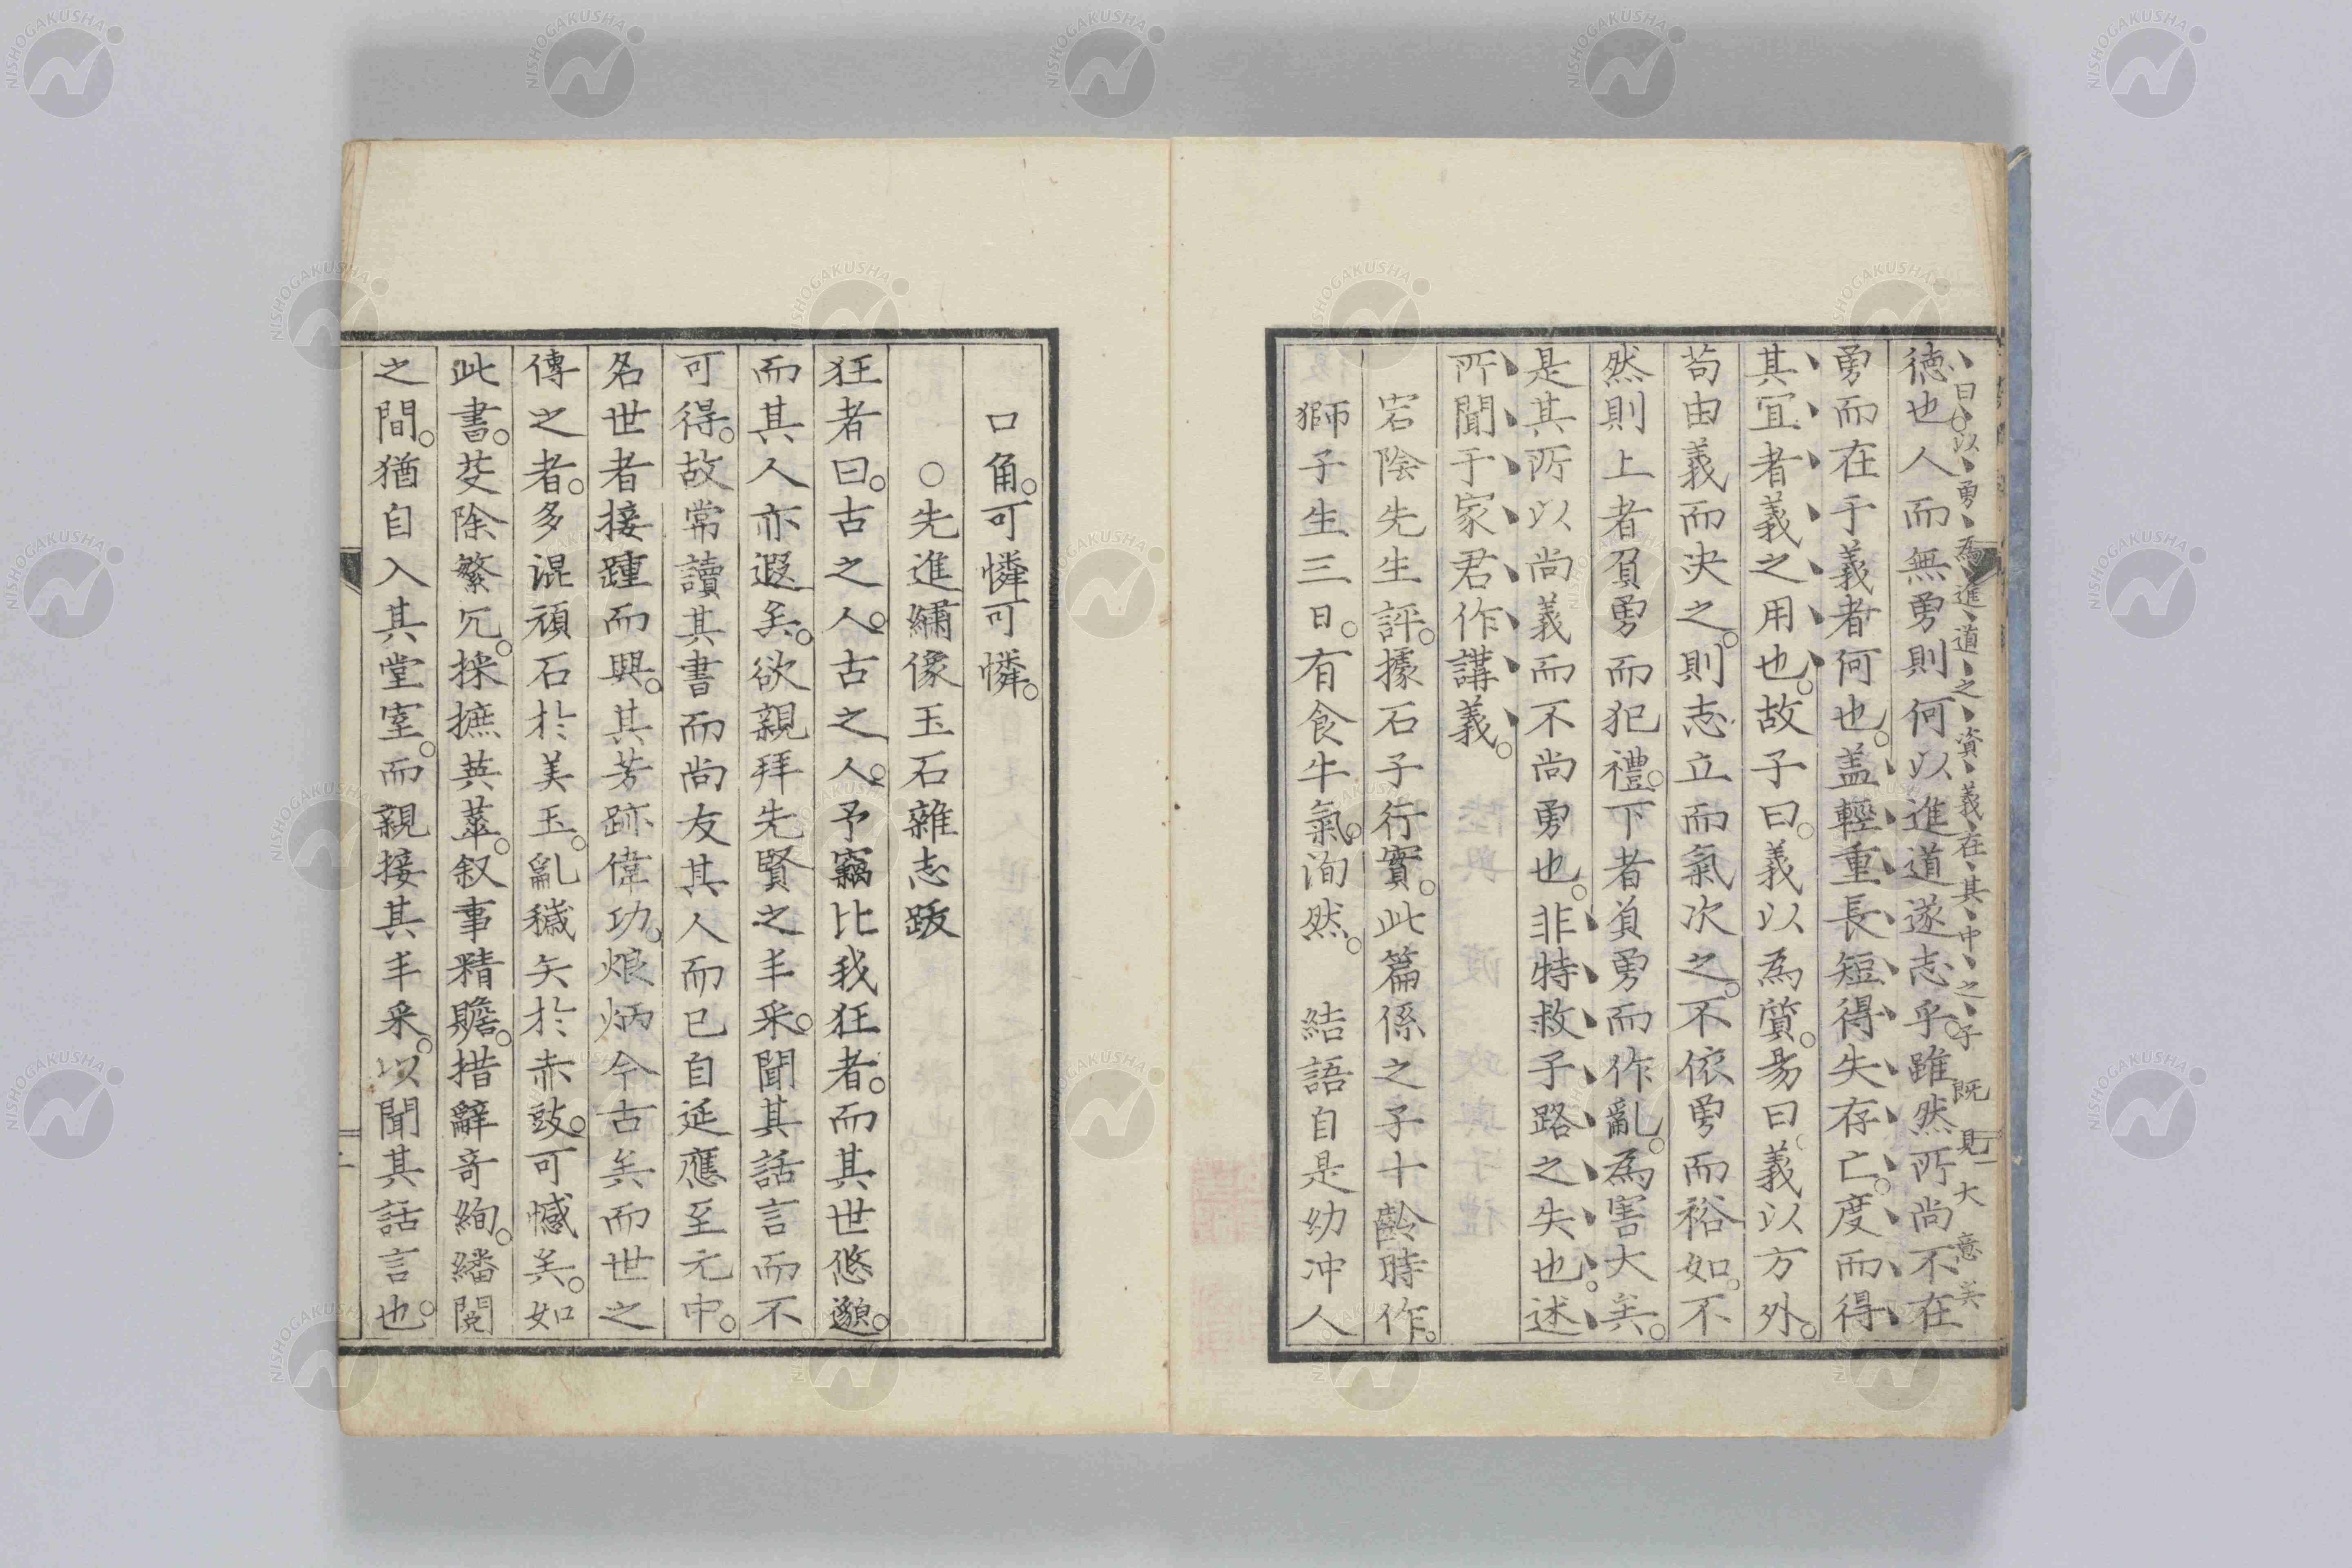 曰以勇為進道之資義在其中之子既見大意矣
徳也人而無勇則何以進道遂志乎雖然所尚不在
勇而在于義者何也。盖輕重長短得失存亡。度而得
其宜者義之用也。故子曰。義以為質。易曰義以方外。
苟由義而决之。則志立而氣次之。不依勇而裕如。不
然則上者負勇而犯禮。下者負勇而作亂。為害大矣。
是其所以尚義而不尚勇也。非特救子路之失也。述
所聞于家君作講義。
宕陰先生評。據石子行實。此篇係之子十齡時作。
獅子生三日。有食牛氣。洵然。 結語自是幼冲人
口角。可憐可憐。
○先進繡像玉石雜志跋
狂者曰。古之人。古之人。予竊比我狂者。而其世悠邈。
而其人亦遐矣。欲親拜先賢之丰采。聞其話言而不
可得。故常讀其書而尚友其人而已自延應至元中。
名世者接踵而興。其芳跡偉功。烺炳今古矣而世之
傳之者。多混頑石於美玉。亂穢矢於赤豉。可憾矣。如
此書。芟除繁冗。採摭英華。叙事精贍。措辭奇絢。繙閲
之間。猶自入其堂室。而親接其丰采。以聞其話言也。
NISHOGAKUSHA